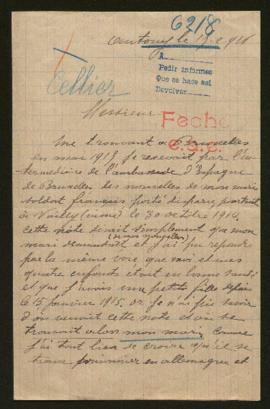 6218
Antony le 1916
A
Pedir informes
Que se hace así
Devolver
Cellier
Monsieur
Fecha
Me trouvant à Bruxelles
en mai 1915 je recevais par l'in
termédiaire de l'ambassade d'Espagne
de Bruxelles des nouvelles de mon mari
soldat français porté disparu
à Vailly (Aisne) le 30 octobre 1914
cette note disait simplement que mon
mari demandait et j'ai pu répondre
par la même voie que moi et mes
quatre enfants étaient en bonne santé
et que j'avais une petite fille depuis
le 15 janvier 1915. or je n'ai pu savoir
d'où venait cette note et où se
trouvait alors mon mari. Comme
j'ai tout lieu de croire qu'il se
trouve prisonnier en allemagne et